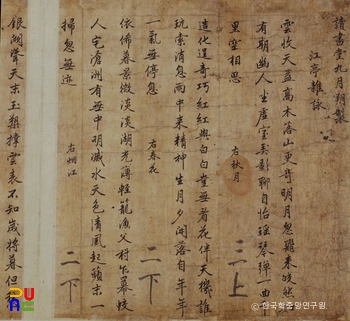 讀書堂九月朔製
江亭雜詠
雲收天盡高木落山更奇明月忽飛來皎然
有期幽人坐虛室美影聊自怡瑤琴彈一曲
里空相思
右秋月
三上
造化逞奇巧紅紅與白白堂無着花伴天機誰
玩索消息兩中來精神生月夕開落自年年
一氣無停息
右春花
二下
依俙暮景微淡淡湖光薄輕籠漁父村乍羃
人宅滄洲有無中明滅水天色清風起蘋末一
掃忽無迹
右烟江
二下
銀潮聳天末玉槊撑雲表不知歲將暮但
한국학중앙연구원